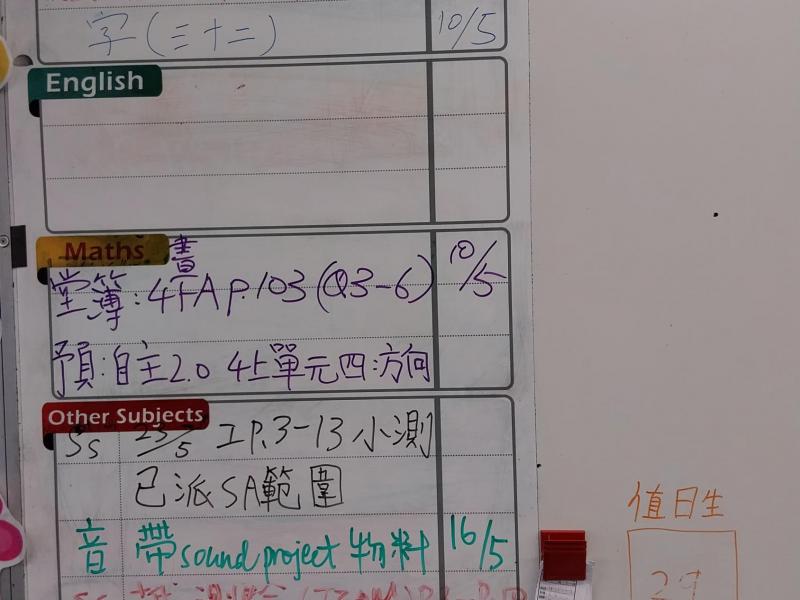 字(三十二) 10/5
English
Maths
書
堂簿:4下A P.103 (Q3-6) 10/5
預:自主2.0 4上單元四:方向
Other Subjects
Ss 23/5 工P.3-13 小測
已派SA範圍
音 帶sound project 物料 16/5
值日生